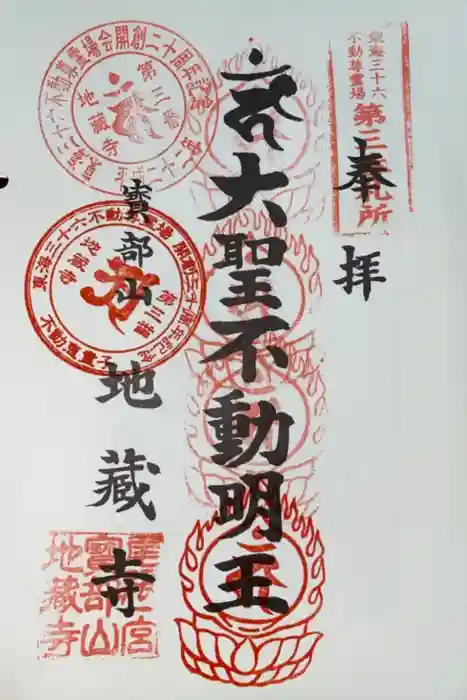 東海三十六
不動尊霊場
第三番札所
奉拝
大聖不動明王
寳部山
地蔵寺
東海三十六不動尊霊場会開創二十周年記念
第三番
地蔵寺
東海三十六不動尊霊場
第三番
地蔵寺
寳部山
地蔵寺